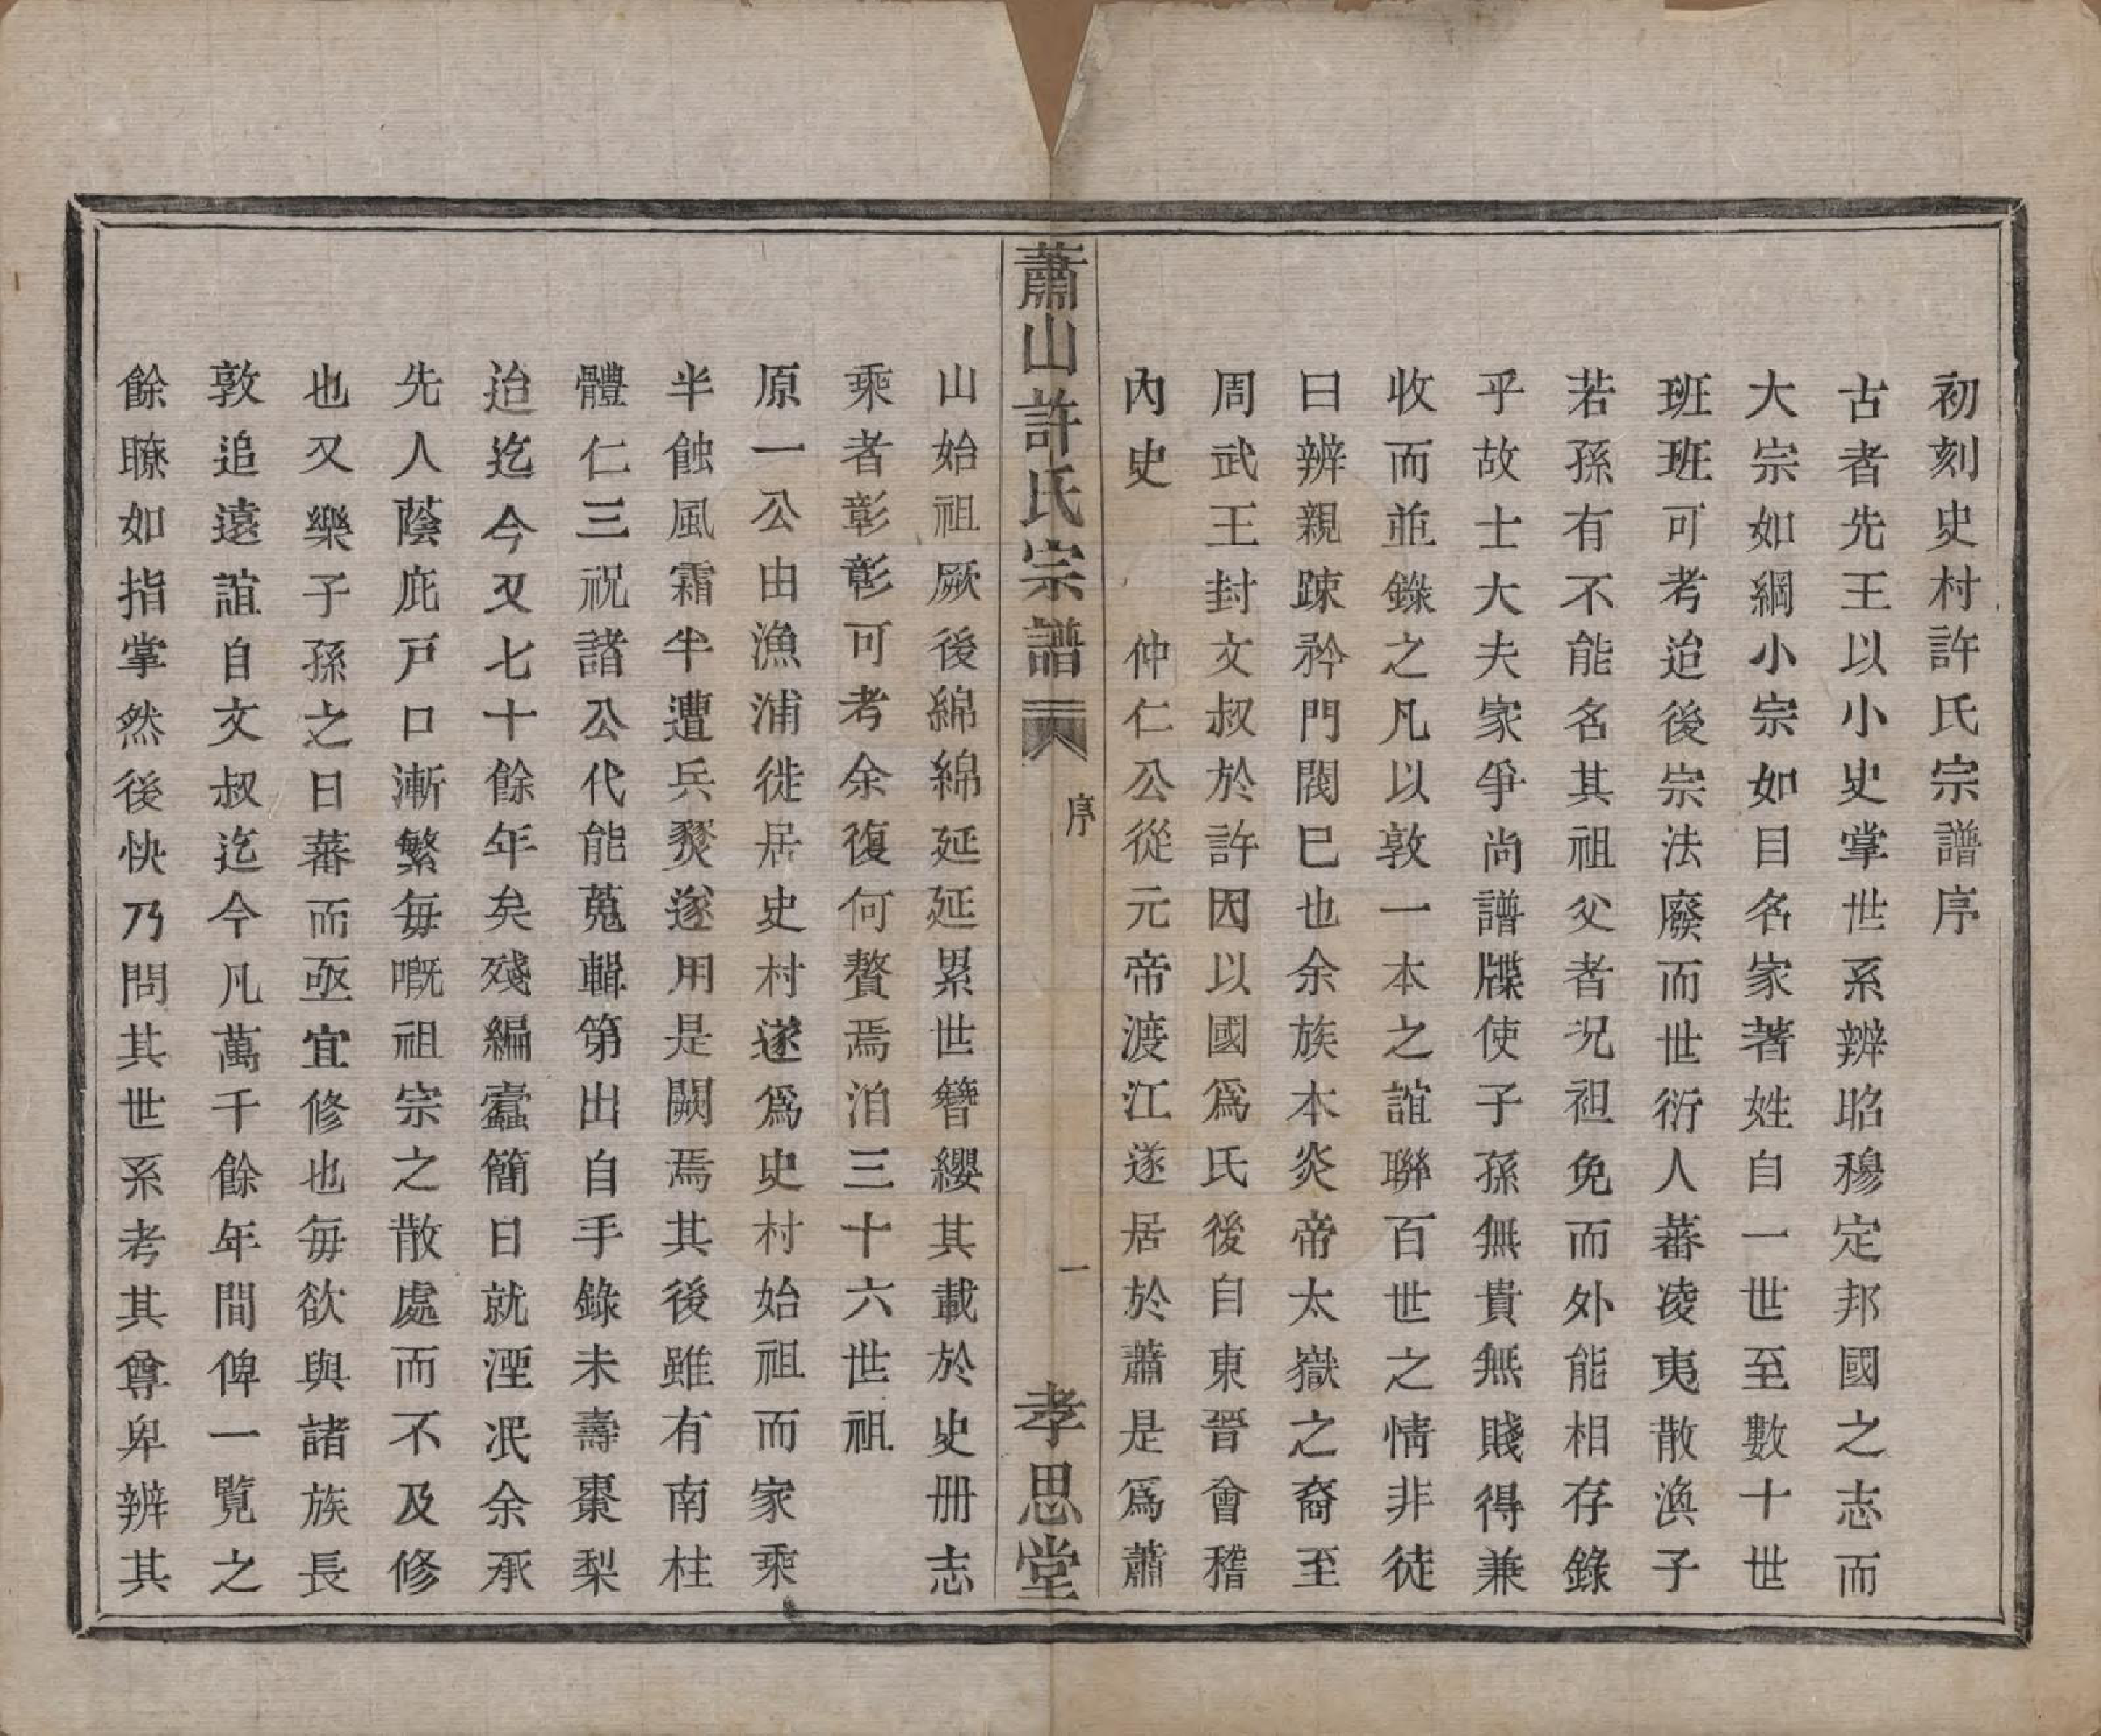 初刻史村許氏宗譜序
古者先王以小史掌世系辨昭穆定邦國之志而
大宗如綱小宗如目名家著姓自一世至數十世
班班可考迨後宗法廢而世衍人蕃凌夷散渙子
若孫有不能名其祖父者况袒免而外能相存錄
乎故士大夫家爭尚譜牒使子孫無貴無賤得兼
收而並錄之凡以敦一本之誼聯百世之情非徒
曰辨親踈矜門閥已也余族本炎帝太嶽之裔至
周武王封文叔於許因以國爲氏後自東晉會稽
內史　仲仁公從元帝渡江遂居於蕭是爲蕭
蕭山許氏宗譜　序　一　孝思堂
山始祖厥後綿綿延延累世簪纓其載於史册志
乘者彰彰可考余復何贅焉洎三十六世祖
原一公由漁浦徙居史村遂爲史村始祖而家乘
半蝕風霜半遭兵燹遂用是闕焉其後雖有南柱
體仁三祝諸公代能蒐輯第出自手錄未壽棗梨
迨迄今又七十餘年矣殘編蠹簡日就湮泯余承
先人蔭庇戸口漸繁每嘅祖宗之散處而不及修
也又樂子孫之日蕃而亟宜修也每欲與諸族長
敦追遠誼自文叔迄今凡萬千餘年間俾一覽之
餘瞭如指掌然後快乃問其世系考其尊卑辨其